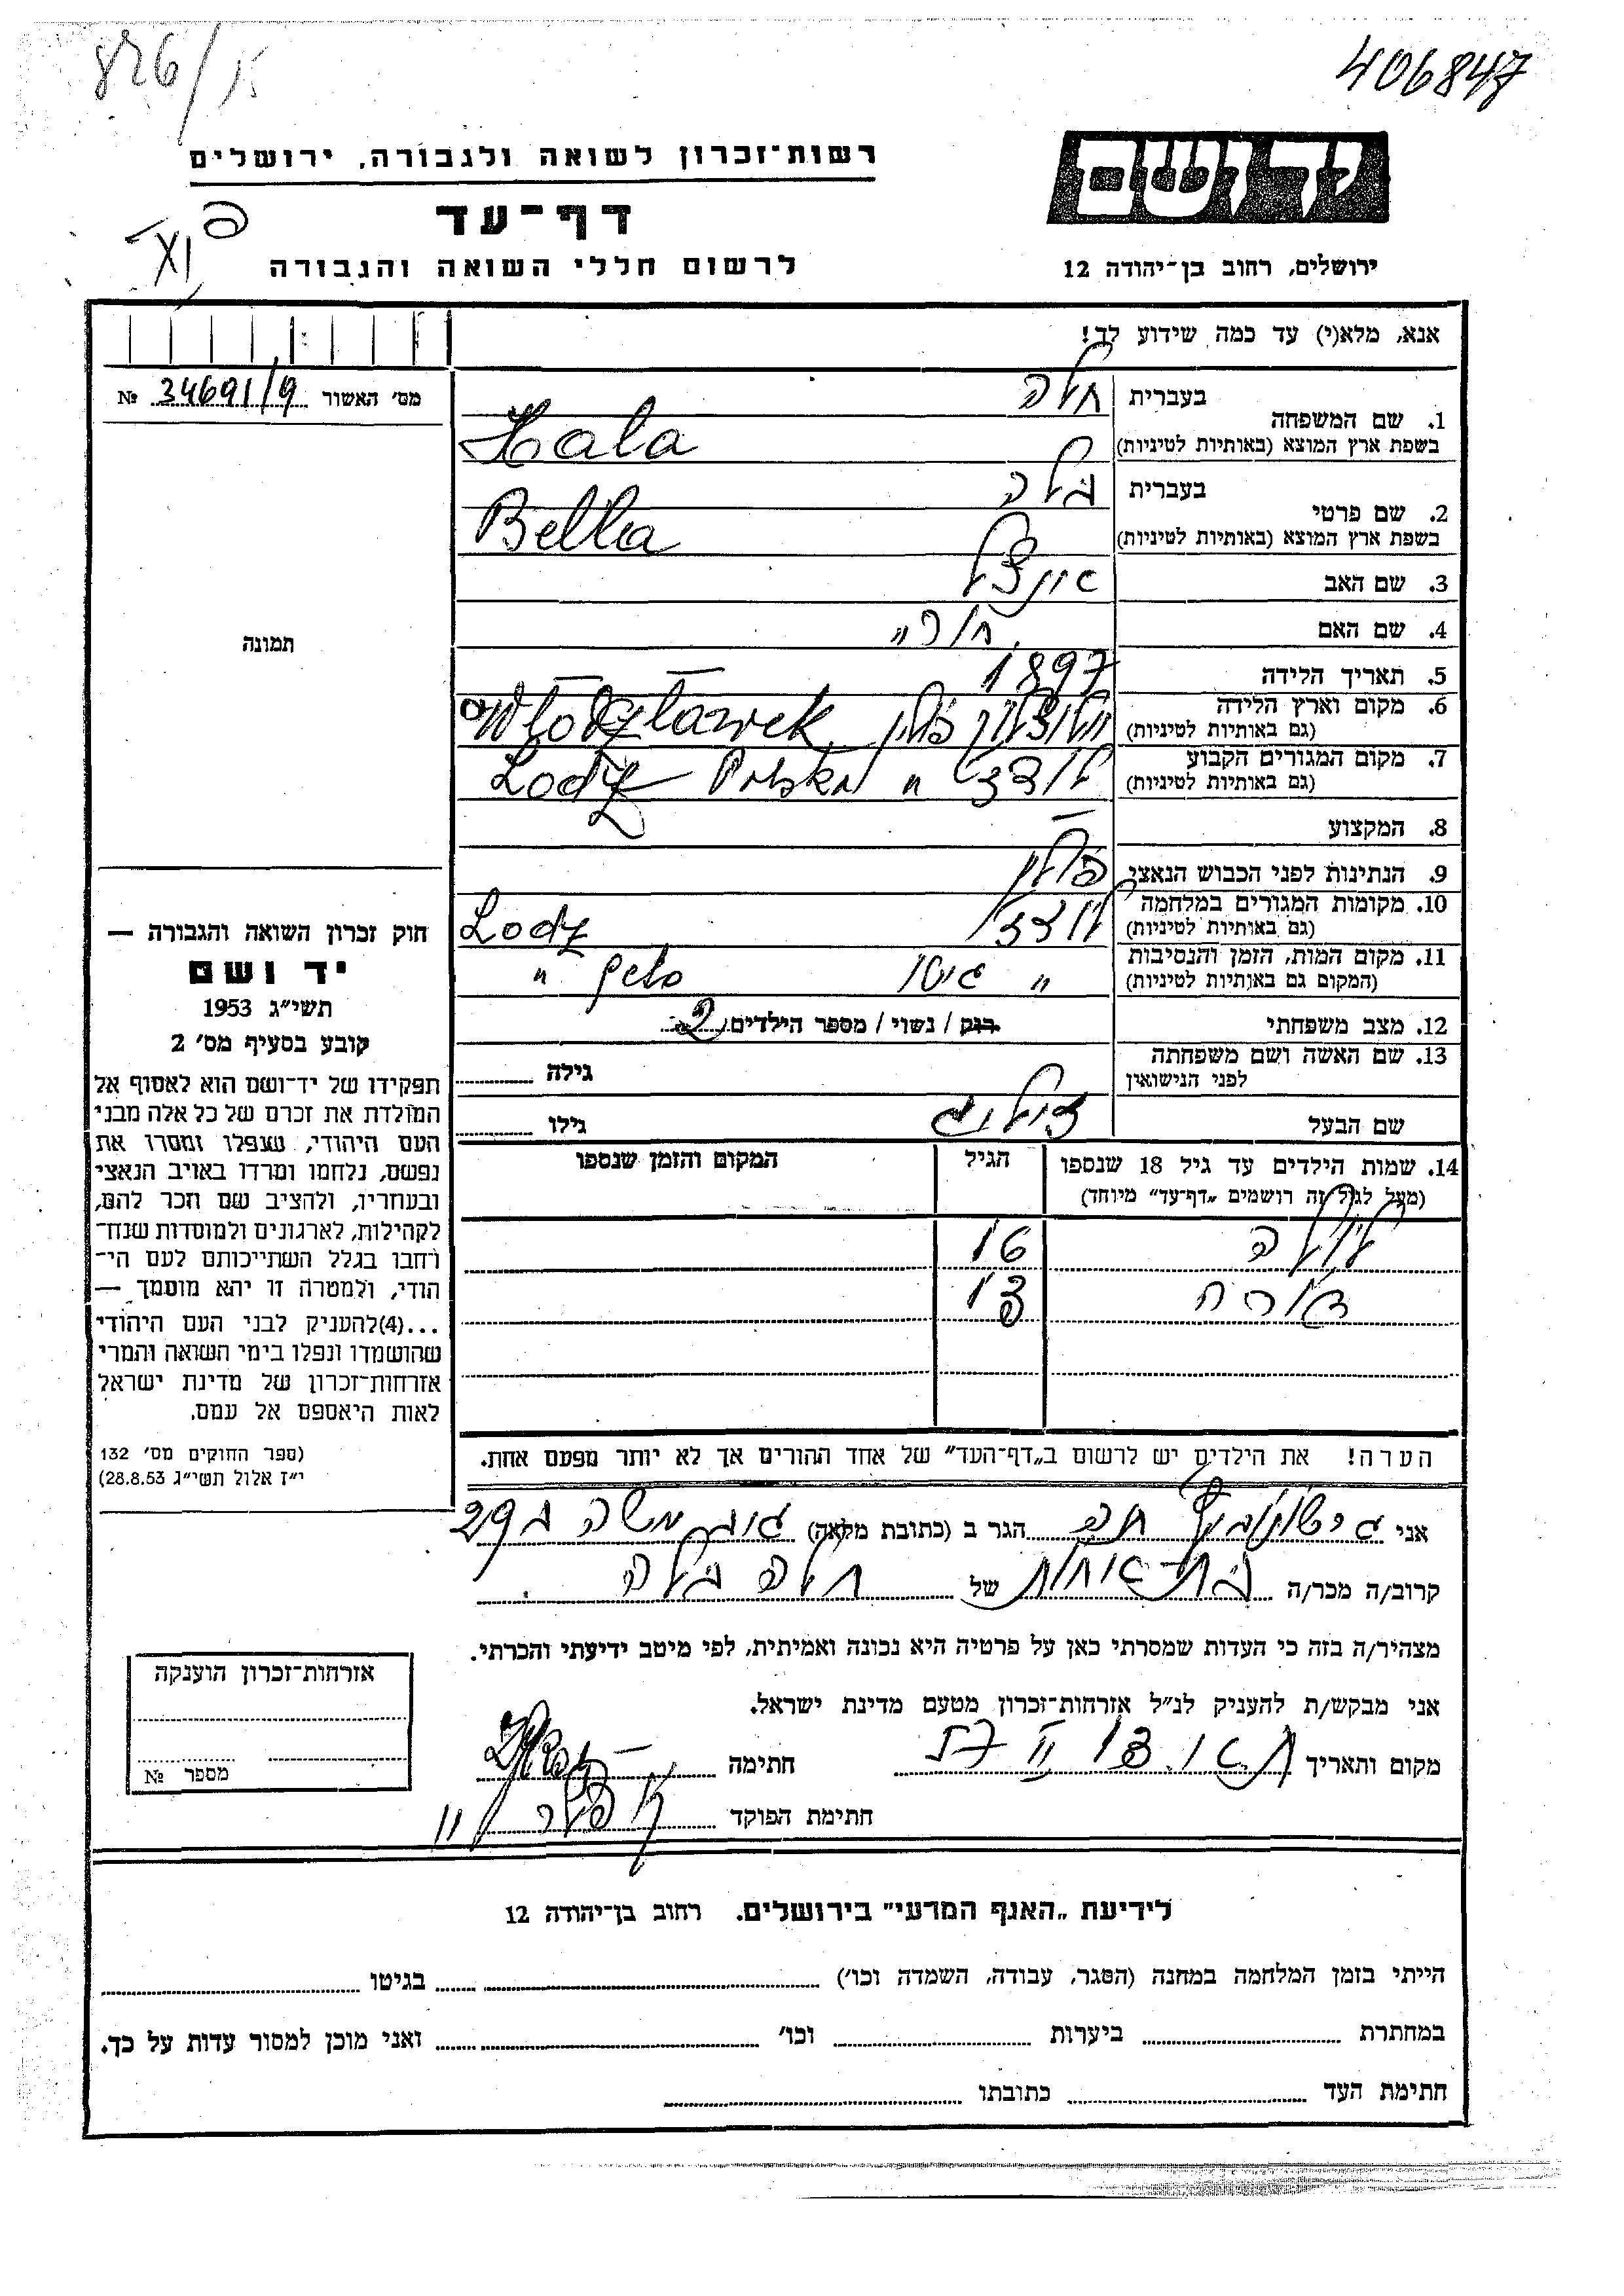 406847
826/
רשות־זכרון לשואה ולגבורה, ירושלים
יד ושם
דף־עד
לרשום חללי השואה והגבורה
ירושלים, רחוב בן־יהודה 12
אנא, מלא(י) עד כמה שידוע לך!
מס׳ האשור 34691/9 №
1. שם המשפחה
בעברית חלה
בשפת ארץ המוצא (באותיות לטיניות) Hala
2. שם פרטי
בעברית בלה
בשפת ארץ המוצא (באותיות לטיניות) Bella
3. שם האב
4. שם האם
5. תאריך הלידה 1897
6. מקום וארץ הלידה
(גם באותיות לטיניות) פולין
7. מקום המגורים הקבוע
(גם באותיות לטיניות) לודז׳ " Polska Lodz
8. המקצוע —
9. הנתינות לפני הכבוש הנאצי פולין
10. מקומות המגורים במלחמה
(גם באותיות לטיניות) לודז׳ Lodz
11. מקום המות, הזמן והנסיבות
(המקום גם באותיות לטיניות) " גיטו "
12. מצב משפחתי רווק / נשוי / מספר הילדים 2
13. שם האשה ושם משפחתה
לפני הנישואין גילה
שם הבעל גילו
14. שמות הילדים עד גיל 18 שנספו הגיל המקום והזמן שנספו
(מעל לגיל זה רושמים „דף־עד״ מיוחד)
לולה 16
13
הערה! את הילדים יש לרשום ב„דף־העד״ של אחד ההורים אך לא יותר מפעם אחת.
תמונה
חוק זכרון השואה והגבורה —
יד ושם
תשי״ג 1953
קובע בסעיף מס׳ 2
תפקידו של יד־ושם הוא לאסוף אל
המולדת את זכרם של כל אלה מבני
העם היהודי, שנפלו ומסרו את
נפשם, נלחמו ומרדו באויב הנאצי
ובעוזריו, ולהציב שם וזכר להם,
לקהילות, לארגונים ולמוסדות שנח־
רחבו בגלל השתייכותם לעם הי־
הודי, ולמטרה זו יהא מוסמך —
...(4)להעניק לבני העם היהודי
שהושמדו ונפלו בימי השואה והמרי
אזרחות־זכרון של מדינת ישראל
לאות היאספם אל עמם.
(ספר החוקים מס׳ 132
י״ז אלול תשי״ג 28.8.53)
אני חנה הגר ב (כתובת מלאה) משה
קרוב/ה מכר/ה בת־אחות של חלה בלה
מצהיר/ה בזה כי העדות שמסרתי כאן על פרטיה היא נכונה ואמיתית, לפי מיטב ידיעתי והכרתי.
אני מבקש/ת להעניק לנ״ל אזרחות־זכרון מטעם מדינת ישראל.
מקום ותאריך חתימה
חתימת הפוקד
אזרחות־זכרון הוענקה
מספר №
לידיעת „האגף המדעי״ בירושלים. רחוב בן־יהודה 12
הייתי בזמן המלחמה במחנה (הסגר, עבודה, השמדה וכו׳) בגיטו
במחתרת ביערות וכו׳ ואני מוכן למסור עדות על כך.
חתימת העד כתובתו